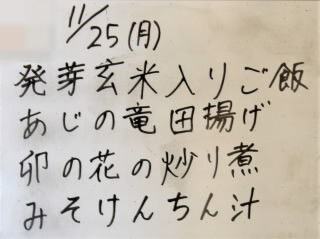 11/25(月)
発芽玄米入りご飯
あじの竜田揚げ
卯の花の炒り煮
みそけんちん汁